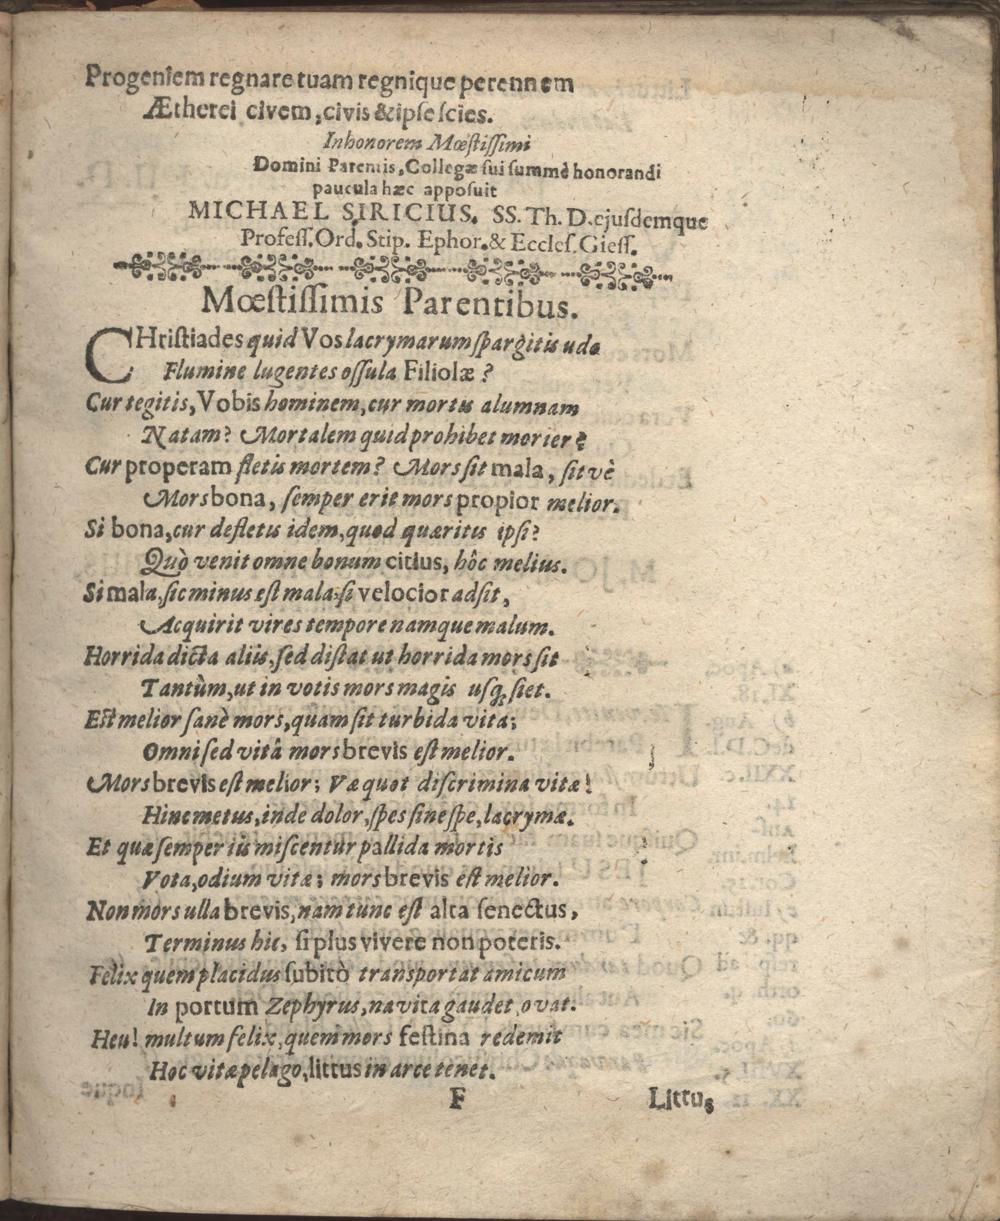 Progeniem regnare tuam regnique perennem
Ætherei civem, civis & ipse scies.
In honorem Mœstissimi
Domini Parentis, Collegæ sui summè honorandi
paucula hæc apposuit
MICHAEL SIRICIUS. SS. Th. D. ejusdemque
Profess. Ord. Stip. Ephor. & Eccles. Giess.
Mœstissimis Parentibus.
CHristiades quid Vos lacrymarum spargitis udo
Flumine lugentes ossula Filiolæ?
Cur tegitis, Vobis hominem, cur mortis alumnam
Natam? Mortalem quid prohibet morier?
Cur properam fletis mortem? Mors sit mala, sit vè
Mors bona, semper erit mors propior melior.
Si bona, cur defletis idem, quod quæritis ipsi?
Quò venit omne bonum citius, hôc melius.
Si mala, sic minus est mala, si velocior adsit,
Acquirit vires tempore namque malum.
Horrida dicta aliis, sed distat ut horrida mors sit
Tantùm, ut in votis mors magis usq; siet.
Est melior sanè mors, quam sit turbida vita;
Omni sed vitâ mors brevis est melior.
Mors brevis est melior; Væ quot discrimina vitæ!
Hinc metus, inde dolor, spes sine spe, lacrymæ.
Et quæ semper iis miscentur pallida mortis
Vota, odium vitæ; mors brevis est melior.
Non mors ulla brevis, nam tunc est alta senectus,
Terminus hic, si plus vivere non poteris.
Felix quem placidus subitò transportat amicum
In portum Zephyrus, navita gaudet, ovat.
Heu! multum felix, quem mors festina redemit
Hoc vitæ pelago, littus in arce tenet.
F Littus